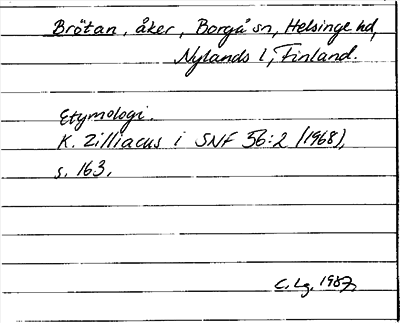 Brötan, åker, Borgå sn, Helsinge hd,
Nylands l, Finland.
Etymologi.
K. Zilliacus i SNF 56:2 (1968),
s. 163.
C. Lg. 1987.